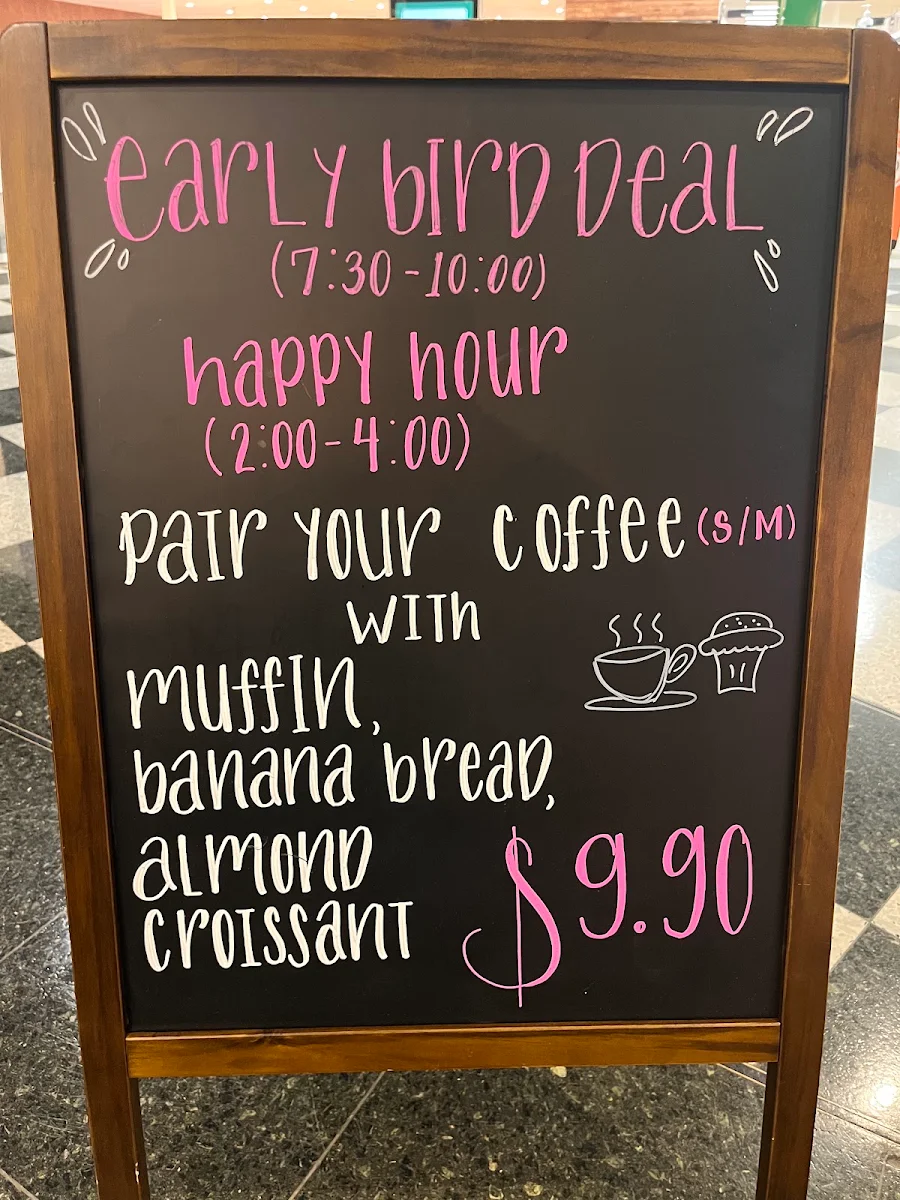 early bird deal
(7:30-10:00)
happy hour
(2:00-4:00)
pair your coffee (S/M)
with
muffin,
banana bread,
almond
croissant
$9.90